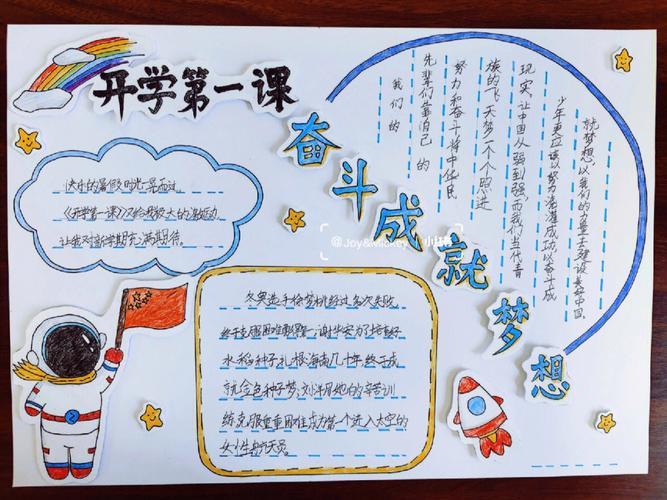 开学第一课
奋斗成就梦想
快乐的暑假时光一晃而过
《开学第一课》又给我极大的
让我对新学期充满期待。
我们的
先辈们靠自己的
努力和奋斗将中华民
族的飞天梦一个个照进
现实,让中国从弱到强,而我们当代青
少年更应该以努力浇灌成功,以奋斗成
就梦想,以我们的力量去建设美好中国.
冬奥选手徐梦桃经过多次失败
终于克服困难取得第一,谢华安为了培育好
水稻种子,扎根海南几十年,终于成
就金色种子梦;刘洋用她的辛苦训
练克服重重困难成为第一个进入太空的
女性航天员。
@Joy&Mickey